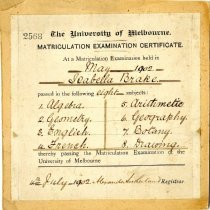 2568
The University of Melbourne.
MATRICULATION EXAMINATION CERTIFICATE.
At a Matriculation Examination held in
May 1902
Isabella Brake
passed in the following eight subjects:
1. Algebra. 5. Arithmetic
2. Geometry. 6. Geography.
3. English. 7. Botany.
4. French. 8. Drawing.
thereby passing the Matriculation Examination of the
University of Melbourne
4th July 1902 Alexander Sutherland Registrar